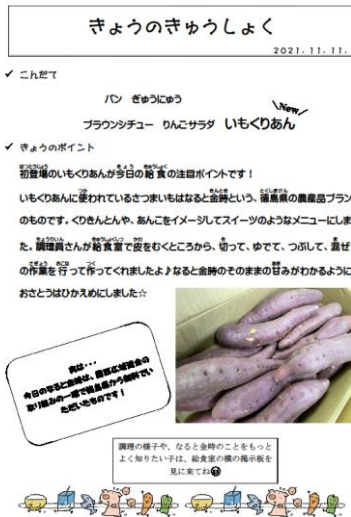 きょうのきゅうしょく
2021.11.11.
✓ こんだて
パン ぎゅうにゅう
New
ブラウンシチュー りんごサラダ いもくりあん
✓ きょうのポイント
初登場のいもくりあんが今日の給食の注目ポイントです！
いもくりあんに使われているさつまいもはなると金時という、徳島県の農産品ブラン
のものです。くりきんとんや、あんこをイメージしてスイーツのようなメニューにしま
た。調理員さんが給食室で皮をむくところから、切って、ゆでて、つぶして、混ぜ
の作業を行って作ってくれましたよ♪なると金時のそのままの甘みがわかるように
おさとうはひかえめにしました☆
実は・・・
今日のなると金時は、
取り組みの一環で徳島県から無料でい
ただいたものです！
調理の様子や、なると金時のことをもっと
よく知りたい子は、給食室の横の掲示板を
見に来てね